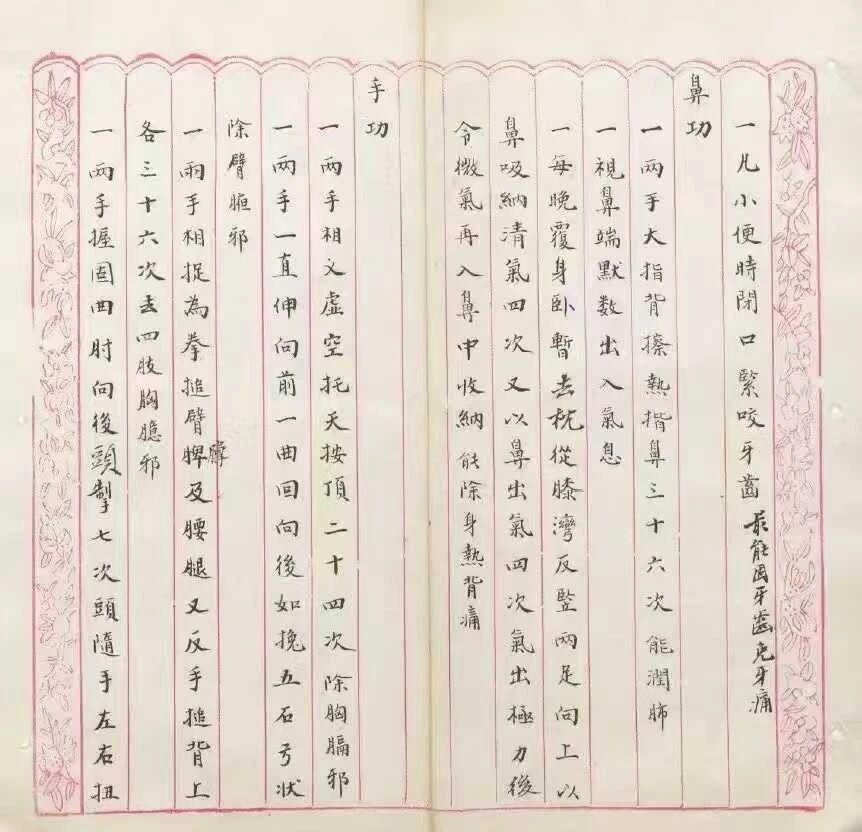 一凡小便時閉口緊咬牙齒最能固牙齒免牙痛
鼻功
一兩手大指背擦熱揩鼻三十六次能潤肺
一視鼻端默數出入氣息
一每晚覆身卧暫去枕從膝灣反竪兩足向上以
鼻吸納清氣四次又以鼻出氣四次氣出極力後
令微氣再入鼻中收納能除身熱背痛
手功
一兩手相义虛空托天按頂二十四次除胸膈邪
一兩手一直伸向前一曲回向後如挽五石弓状
除臂腋邪
一兩手相捉為拳搥臂脾膊及腰腿又反手搥背上
各三十六次去四肢胸臆邪
一兩手握固曲肘向後頭掣七次頭隨手左右扭